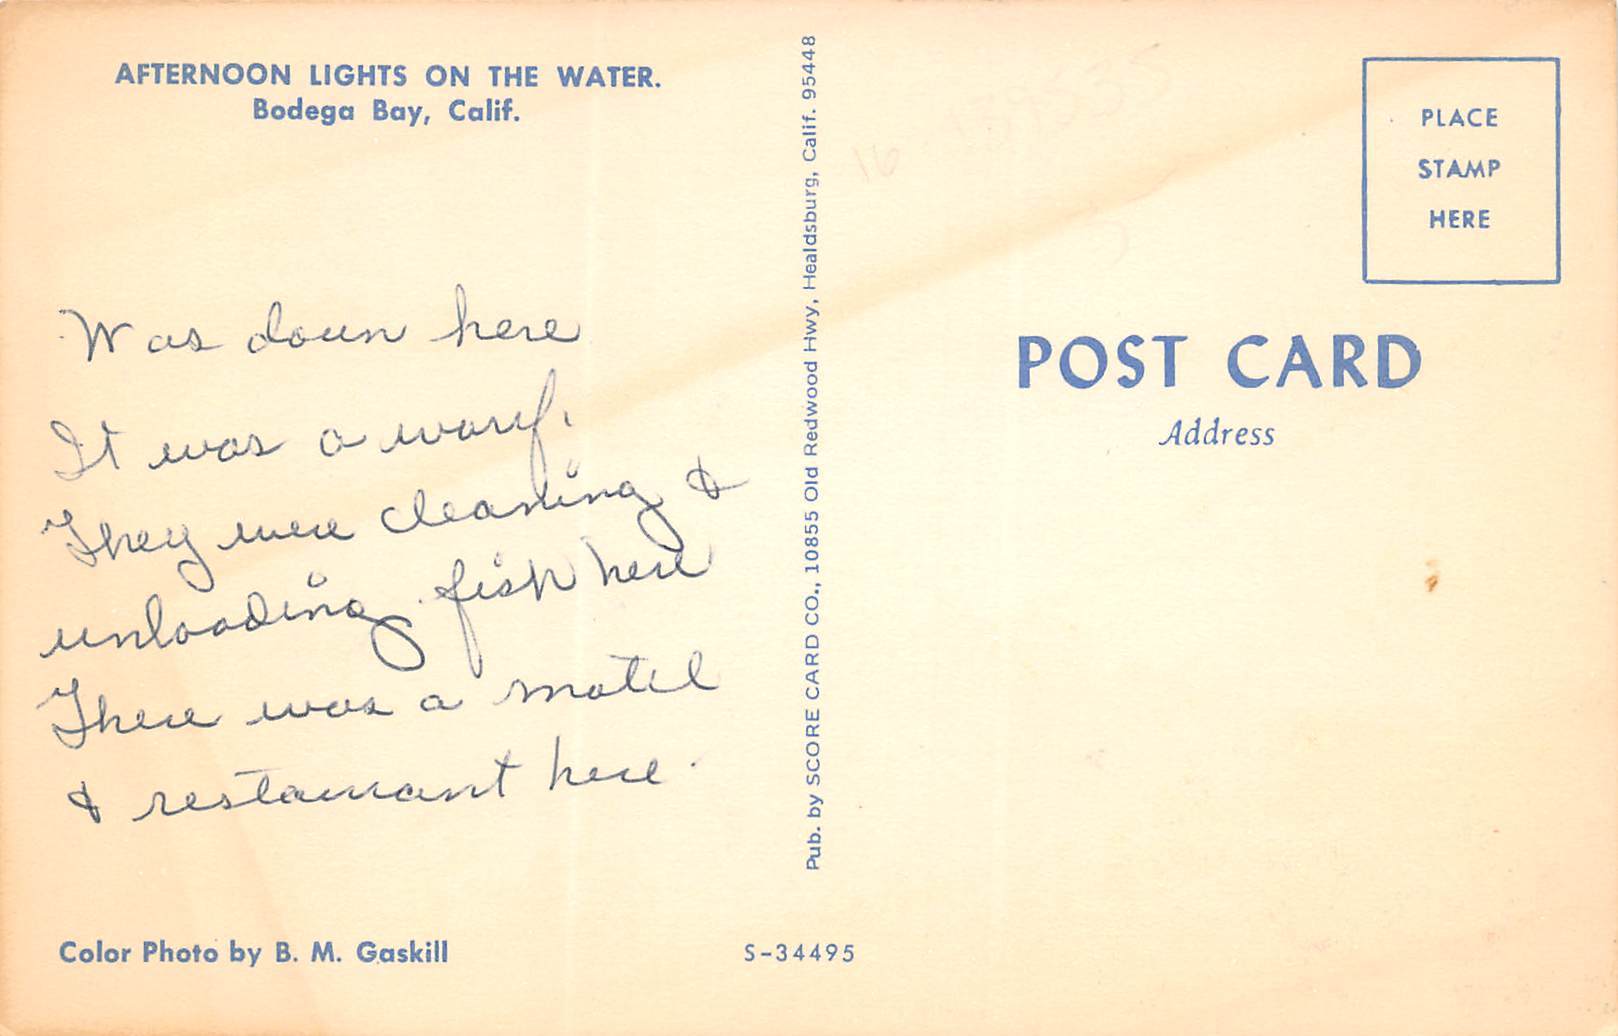 AFTERNOON LIGHTS ON THE WATER.
Bodega Bay, Calif.
Was down here
It was a warf.
They were cleaning &
unloading fish here
There was a motel
& restaurant here.
Color Photo by B. M. Gaskill
Pub. by SCORE CARD CO., 10855 Old Redwood Hwy, Healdsburg, Calif. 95448
S-34495
PLACE
STAMP
HERE
POST CARD
Address
16